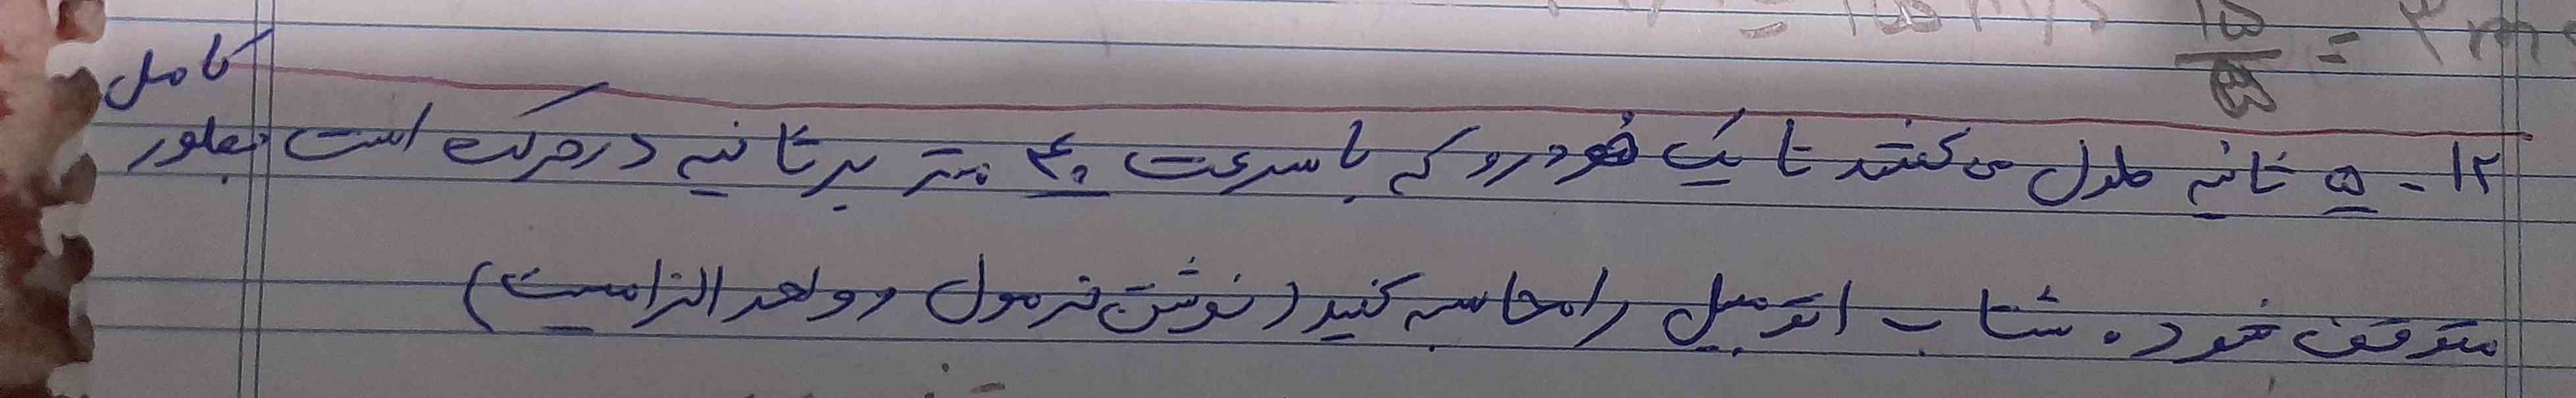 ۱۵/۵ = ۳ m
۱۲ - ۵ ثانیه طول می کشد تا یک خودرو که با سرعت ۴۰ متر بر ثانیه در حرکت است بطور کامل
متوقف شود. شتاب اتومبیل را محاسبه کنید (نوشتن فرمول و واحد الزامیست)